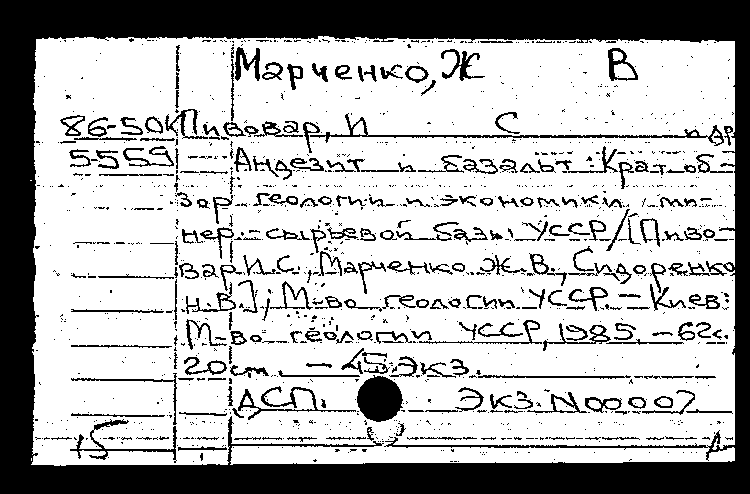 Марченко, Ж В
86-50К Пивовар, И С и др
5559 — Андезит и базальт : Крат. об-
зор геологии и экономики ми-
нер.-сырьевой базы УССР/[Пиво-
вар И.С., Марченко Ж.В., Сидоренко
Н.В.]; М-во геологии УССР. – Киев:
М-во геологии УССР, 1985. – 62с.
20см. – 45 экз.
ДСП. Экз. N00007
15